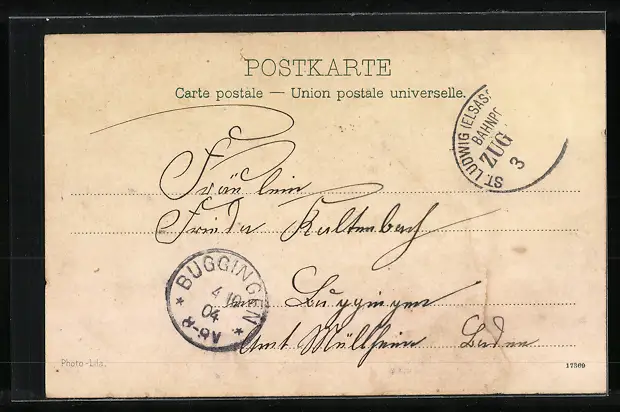 POSTKARTE
Carte postale — Union postale universelle.
ST. LUDWIG (ELSASS
BAHNPO
ZUG
3
Fräulein
Frieda Kaltenbach
BUGGINGEN
4 10
04
Buggingen
Amt Müllheim Baden
Photo-Litis.
17569